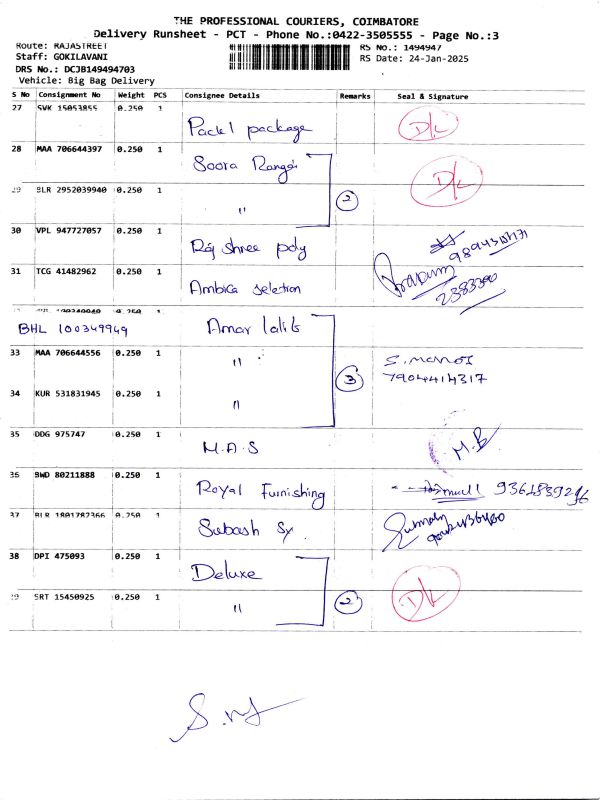 THE PROFESSIONAL COURIERS, COIMBATORE
Delivery Runsheet - PCT - Phone No.:0422-3505555 - Page No.:3
Route: RAJASTREET RS No.: 1494947
Staff: GOKILAVANI RS Date: 24-Jan-2025
DRS No.: DCJB149494703
Vehicle: Big Bag Delivery
S No Consignment No Weight PCS Consignee Details Remarks Seal & Signature
27 SVK 15053855 0.250 1
Pack 1 package D/L
28 MAA 706644397 0.250 1
Soora Rangai D/L
29 BLR 2952039940 0.250 1
" 2
30 VPL 947727057 0.250 1
Raj shree poly
31 TCG 41482962 0.250 1
Ambica seletion 2383390
BHL 100349949 Amar lalits
33 MAA 706644556 0.250 1
" 3 S. MANOJ
7904414317
34 KUR 531831945 0.250 1
"
35 DDG 975747 0.250 1
M.A.S M.B
36 BWD 80211888 0.250 1
Royal Furnishing
37 BLR 1801782366 0.250 1
Subash Sy
38 DPI 475093 0.250 1
Deluxe D/L
39 SRT 15450925 0.250 1
" 2